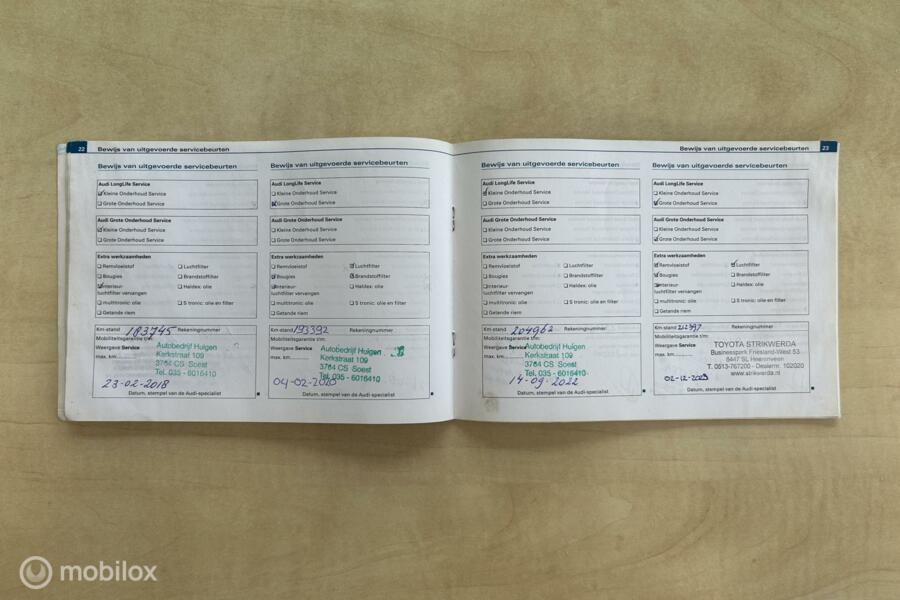 22
Bewijs van uitgevoerde servicebeurten
Bewijs van uitgevoerde servicebeurten
Audi LongLife Service
Kleine Onderhoud Service
Grote Onderhoud Service
Audi Grote Onderhoud Service
Kleine Onderhoud Service
Grote Onderhoud Service
Extra werkzaamheden
Remvloeistof
Luchtfilter
Bougies
Brandstoffilter
Interieur-
luchtfilter vervangen
Haldex: olie
multitronic: olie
S tronic: olie en filter
Getande riem
Km-stand 183745 Rekeningnummer
Mobiliteitsgarantie t/m:
Weergave Service
max. km
Autobedrijf Huigen
Kerkstraat 109
3764 CS Soest
Tel. 035 - 6016410
23-02-2018
Datum, stempel van de Audi-specialist
Bewijs van uitgevoerde servicebeurten
Audi LongLife Service
Kleine Onderhoud Service
Grote Onderhoud Service
Audi Grote Onderhoud Service
Kleine Onderhoud Service
Grote Onderhoud Service
Extra werkzaamheden
Remvloeistof
Luchtfilter
Bougies
Brandstoffilter
Interieur-
luchtfilter vervangen
Haldex: olie
multitronic: olie
S tronic: olie en filter
Getande riem
Km-stand 193392 Rekeningnummer
Mobiliteitsgarantie t/m:
Weergave Service
max. km
Autobedrijf Huigen
Kerkstraat 109
3764 CS Soest
Tel. 035 - 6016410
04-02-2020
Datum, stempel van de Audi-specialist
Bewijs van uitgevoerde servicebeurten
23
Bewijs van uitgevoerde servicebeurten
Audi LongLife Service
Kleine Onderhoud Service
Grote Onderhoud Service
Audi Grote Onderhoud Service
Kleine Onderhoud Service
Grote Onderhoud Service
Extra werkzaamheden
Remvloeistof
Luchtfilter
Bougies
Brandstoffilter
Interieur-
luchtfilter vervangen
Haldex: olie
multitronic: olie
S tronic: olie en filter
Getande riem
Km-stand 204962 Rekeningnummer
Mobiliteitsgarantie t/m:
Weergave Service
max. km
Autobedrijf Huigen
Kerkstraat 109
3764 CS Soest
Tel. 035 - 6016410
14-09-2022
Datum, stempel van de Audi-specialist
Bewijs van uitgevoerde servicebeurten
Audi LongLife Service
Kleine Onderhoud Service
Grote Onderhoud Service
Audi Grote Onderhoud Service
Kleine Onderhoud Service
Grote Onderhoud Service
Extra werkzaamheden
Remvloeistof
Luchtfilter
Bougies
Brandstoffilter
Interieur-
luchtfilter vervangen
Haldex: olie
multitronic: olie
S tronic: olie en filter
Getande riem
Km-stand Rekeningnummer
Mobiliteitsgarantie t/m:
Weergave Service
max. km
TOYOTA STRIKWERDA
Businesspark Friesland-West 53
8447 SL Heerenveen
T. 0513-767200 - Dealernr. 102020
www.strikwerda.nl
02-12-2023
Datum, stempel van de Audi-specialist
mobilox